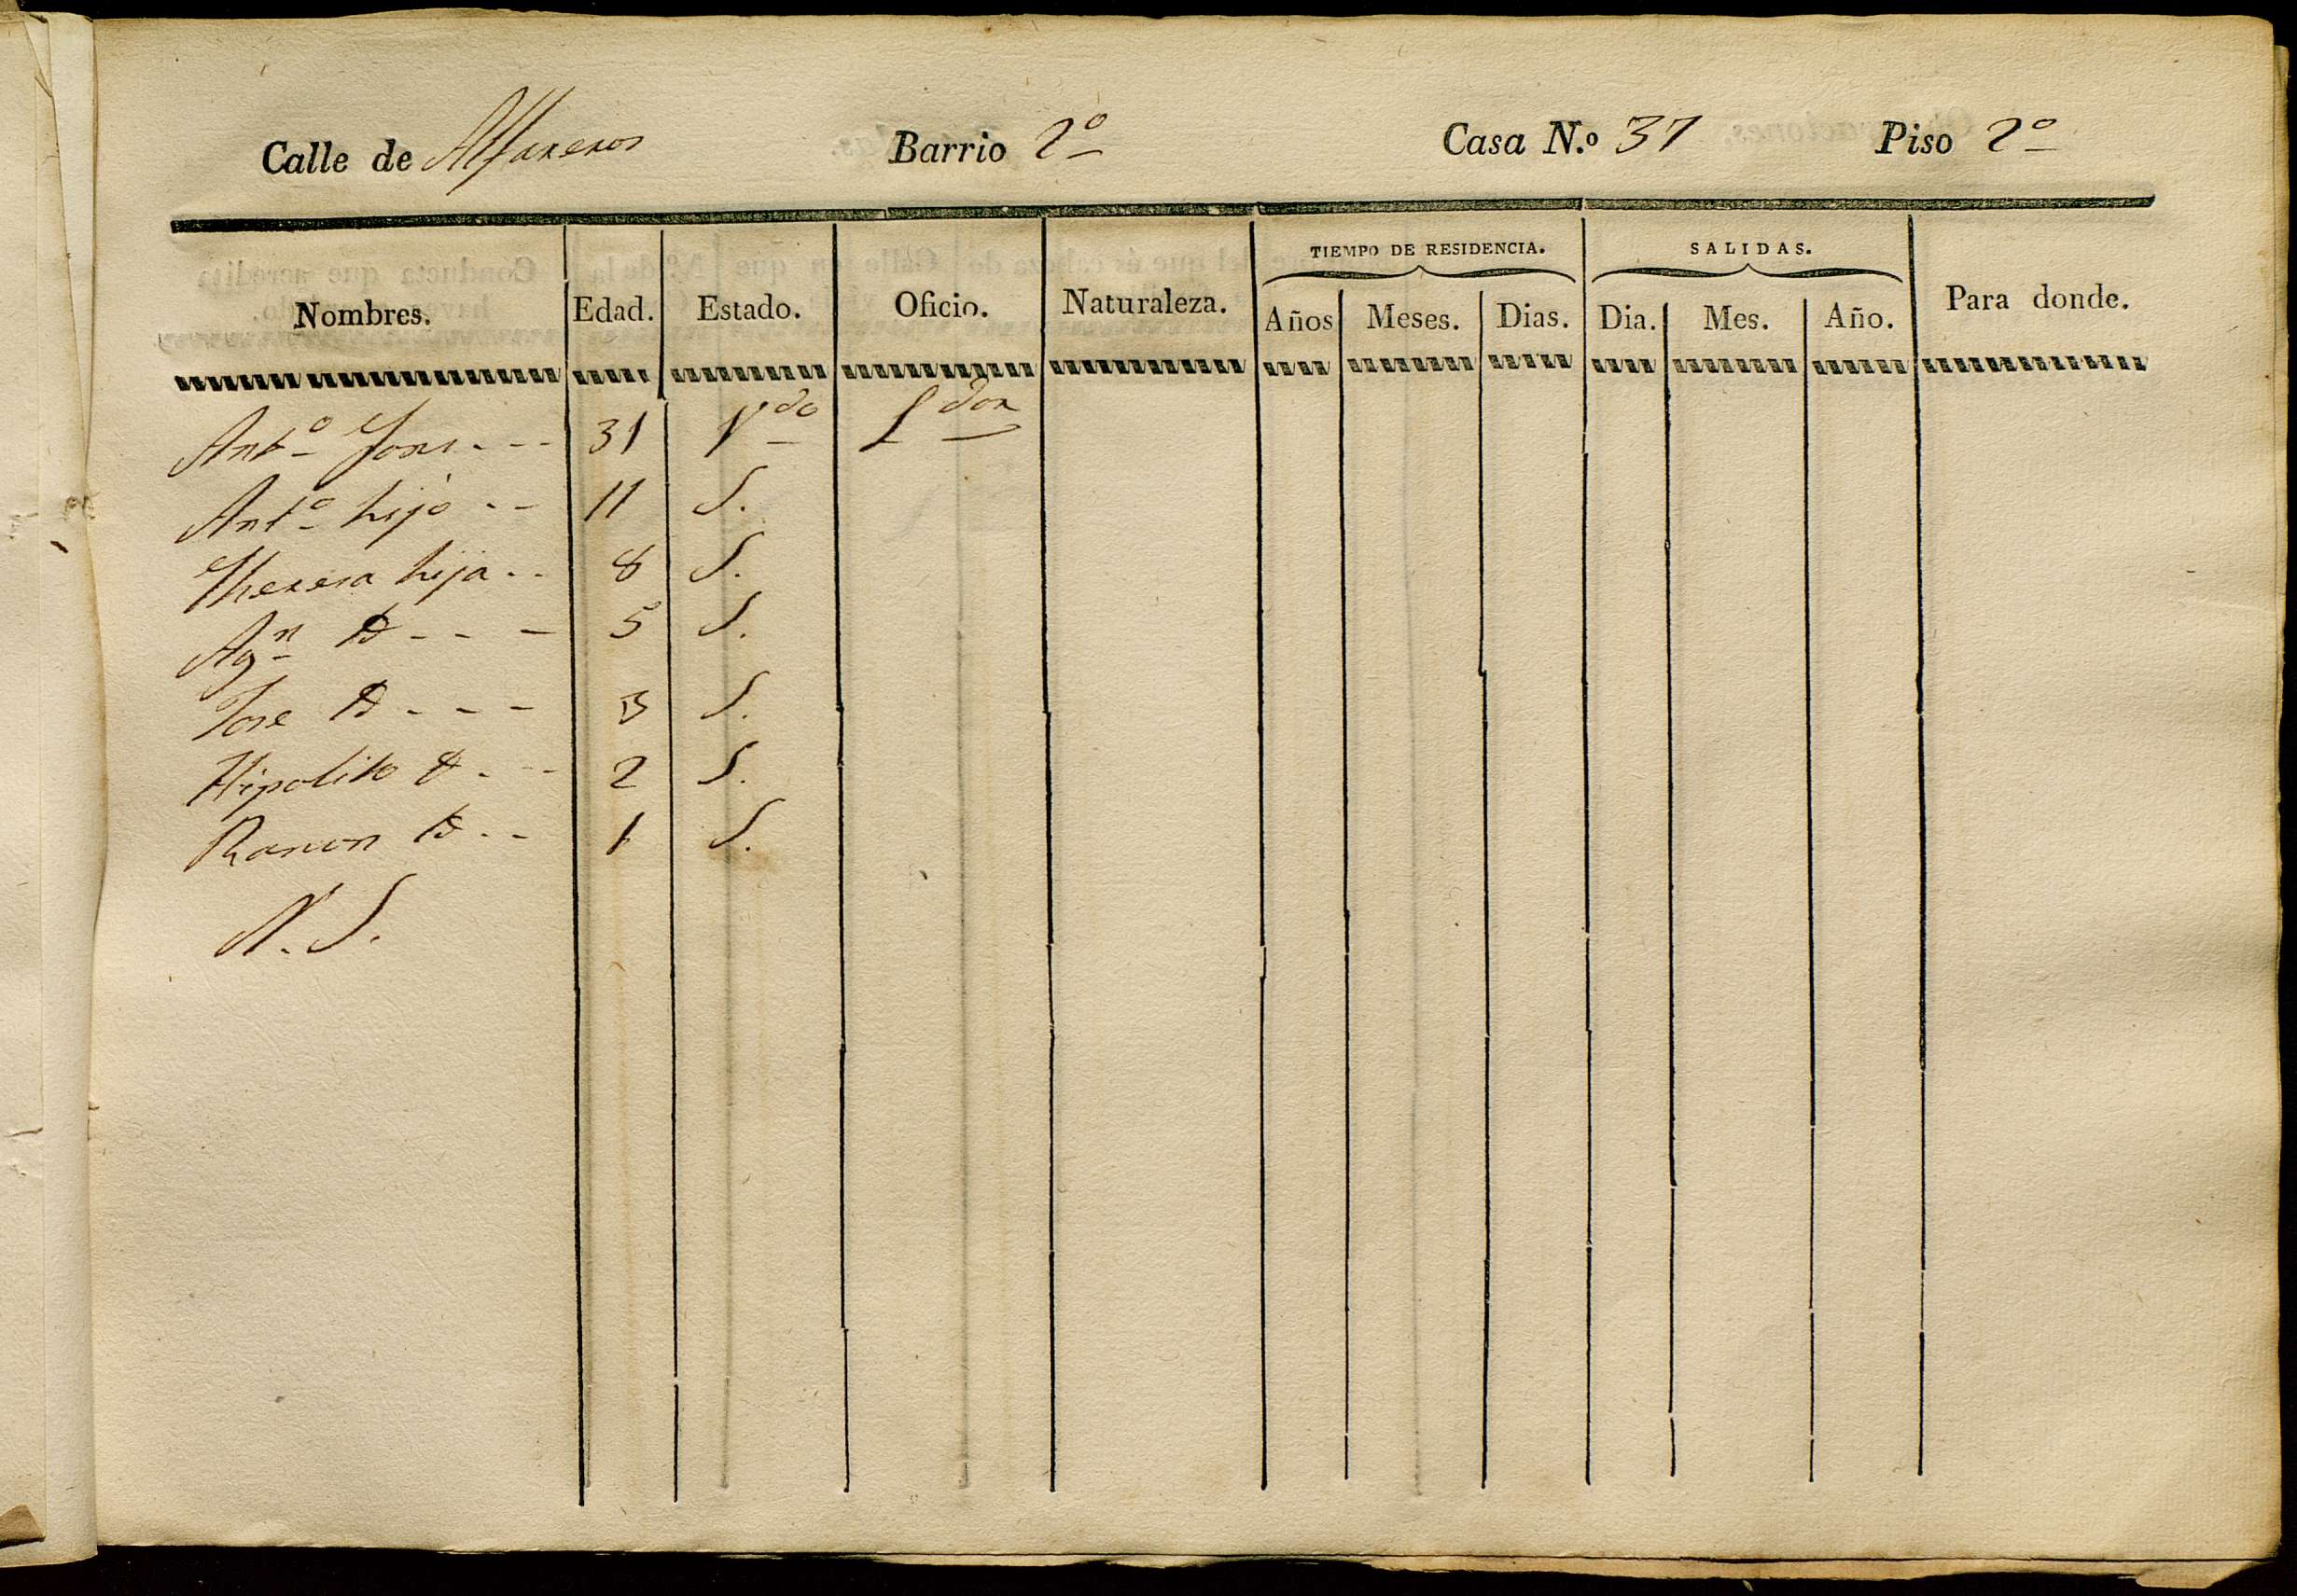 Calle de Alfareros Barrio 2º Casa N.º 37 Piso 2º
TIEMPO DE RESIDENCIA. SALIDAS.
Nombres. Edad. Estado. Oficio. Naturaleza. Años Meses. Dias. Dia. Mes. Año. Para donde.
Antº 31 Vdo Ldor
Antº hijo -- 11 S.
Theresa hija -- 8 S.
Agn D --- 5 S.
Jose D --- 3 S.
Hipolito D --- 2 S.
Ramon D -- 1 S.
N. S.